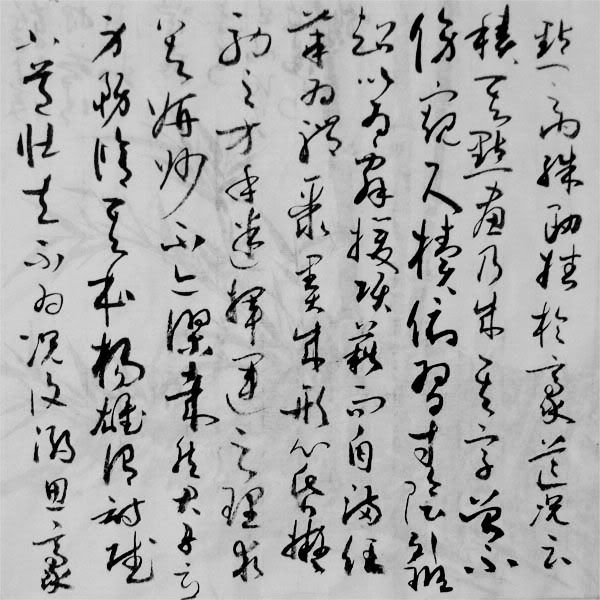 點之內殊衄挫於豪芒況云
積其點畫乃成其字曾不
傍窺尺牘俯習寸陰引班
超以為辭援項籍而自滿任
筆為體聚墨成形心昏擬
效之方手迷揮運之理求
其妍妙不亦謬哉然君子立
身務修其本楊雄謂詩賦
小道壯夫不為況復溺思豪